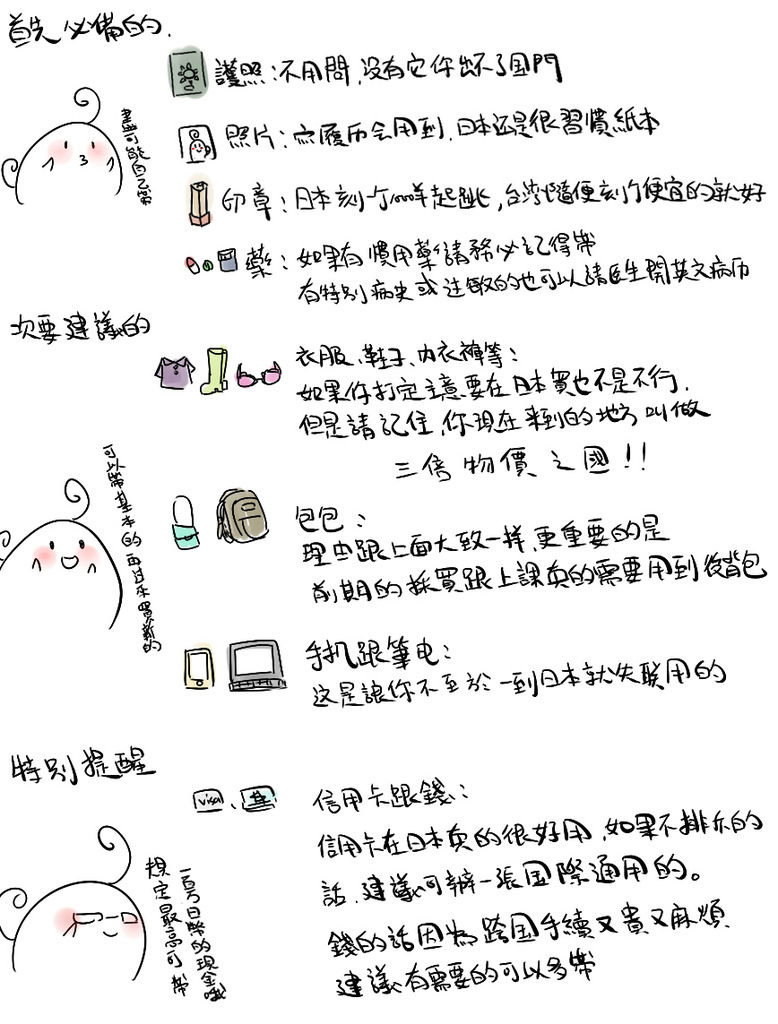 首先必備的.
護照:不用問,沒有它你出不了国門
盡可能自己帶
照片:寫履历会用到,日本还是很習慣紙本
印章:日本刻一个mm咩起跳,台湾隨便刻个便宜的就好
藥:如果有慣用藥請務必記得帶
有特别病史或过敏的也可以請医生開英文病历
次要建議的
衣服、鞋子、内衣褲等:
如果你打定主意要在日本買也不是不行.
但是請記住,你現在来到的地方叫做
三倍物價之國!!
可以帶基本的再过来買新的
包包:
理由跟上面大致一样,更重要的是
前期的採買跟上課真的需要用到後背包
手机跟筆电:
这是讓你不至於一到日本就失联用的
特别提醒
VISA
信用卡跟錢:
信用卡在日本真的很好用,如果不排斥的
話,建議可辦一張国際通用的。
錢的話因為跨国手續又貴又麻煩
建議有需要的可以多帶
規定最高可帶
一百万日幣的現金哦